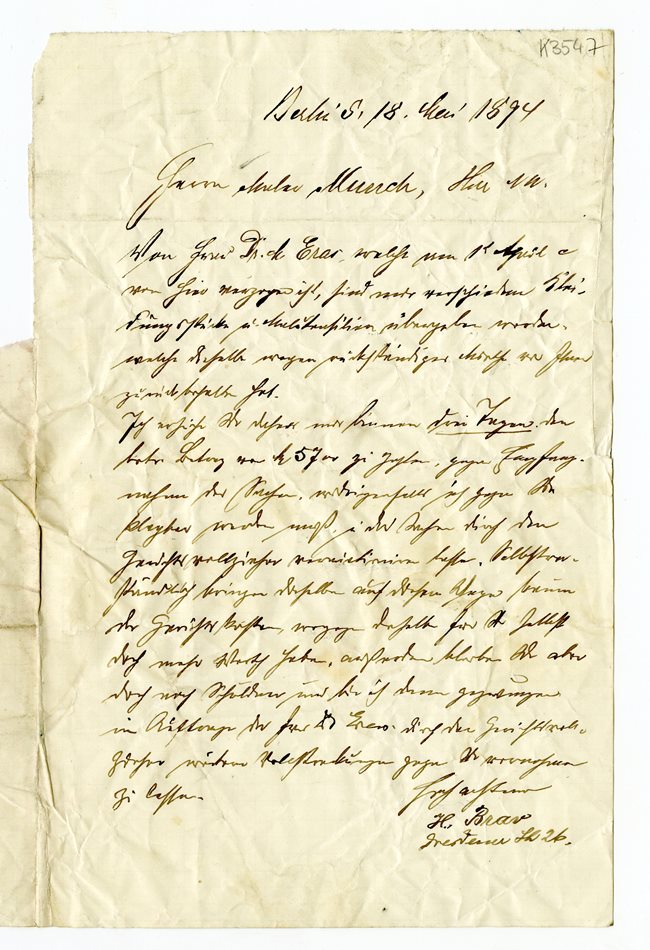 K3547
Berlin S. 18. Mai 1894
Herrn Maler Munch, Hier
Von Frau Dr. Eras, welche am 1t April c
von hier verzogen ist, sind mir verschiedene Klei-
dungsstücke u. Malutensilien übergeben worden,
welche dieselbe wegen rückständiger Miethe von Ihnen
zurückbehalten hat.
Ich ersuche Sie daher mir binnen drei Tagen den
Betrag von M 57 zu zahlen, gegen Empfang-
nahme der Sachen, widrigenfalls ich gegen Sie
klagbar werden muß, u. die Sachen durch den
Gerichtsvollzieher lasse. Selbstver-
ständlich bringen dieselben auf diesem Wege kaum
die Gerichtskosten, wogegen dieselben für Sie selbst
doch mehr Werth haben, außerdem bleiben Sie aber
doch noch Schulden und bin ich dann gezwungen
im Auftrage der Frau Dr Eras durch den Gerichtsvoll-
zieher weitere Vollstreckungen gegen Sie vornehmen
zu lassen.
Hochachtend
H. Brav
Dresdener Str 26.